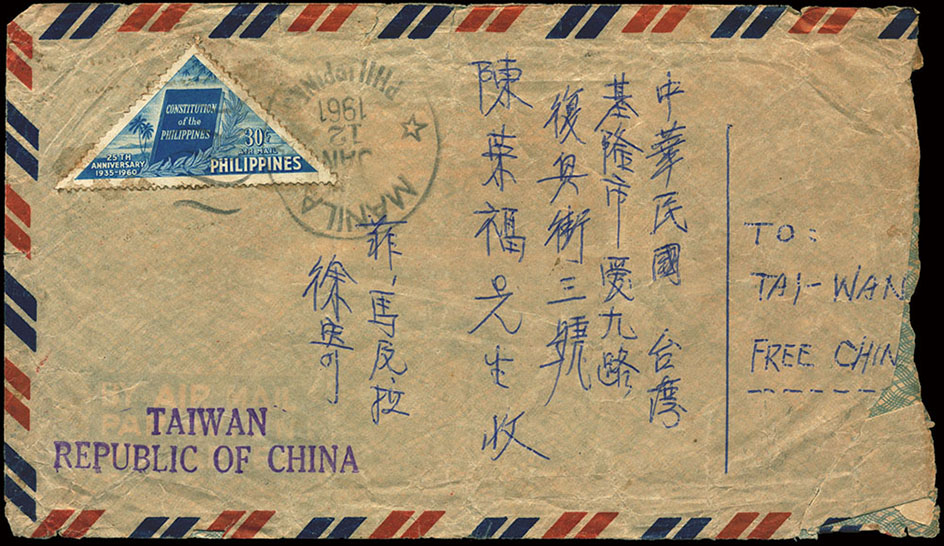 TO:
TAI-WAN
FREE CHIN
中華民國 台灣
基隆市愛九路
復興街三號
陳 福先生收
菲、馬反拉
徐
CONSTITUTION
of the
PHILIPPINES
30c
AIR MAIL
25TH
ANNIVERSARY
1935-1960
PHILIPPINES
MANILA
JAN
12
1961
PHILIPPINES
BY AIR MAIL
TAIWAN
REPUBLIC OF CHINA